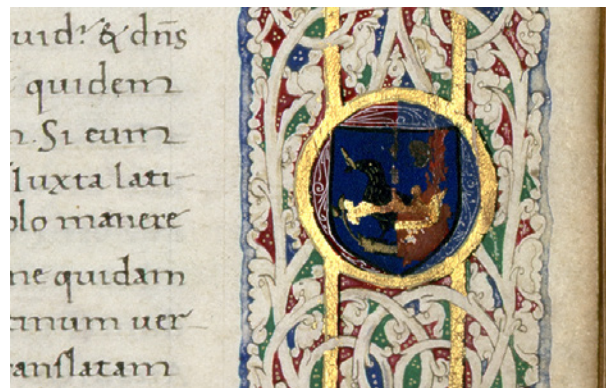 uid᷑ & dn̄s
quidem
Si eum
Iuxta lati-
olo manere
ne quidam
timum uer-
ranslatam